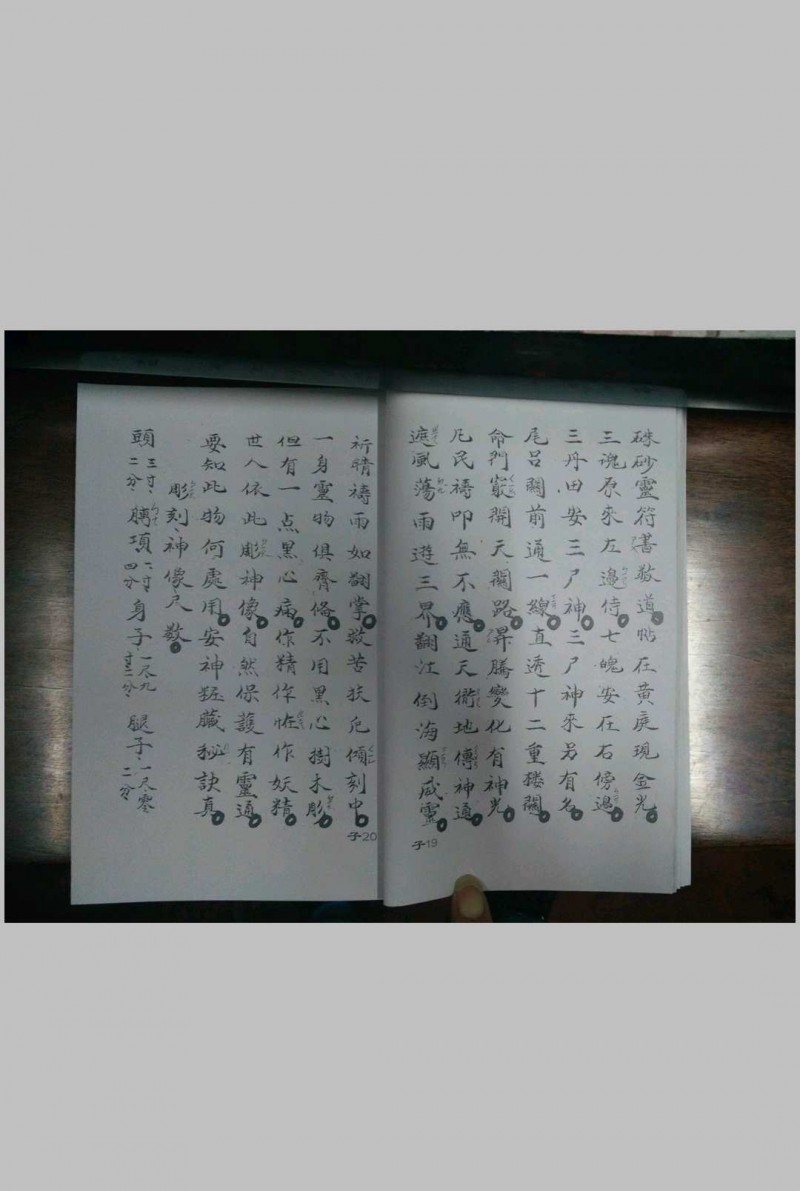 硃砂靈符書敬道帖在黄庭現金光。
三魂原來左邊侍七魄安在石傍邉。
三丹田安三尸神三尸神來另有名。
尾呂關前通一線。直透十二重楼關。
命門竅開天關路。昇騰變化有神光。
凡民禱叩無不應。通天徹地傳神通。
遮風蕩雨遊三界。翻江倒海顯威靈。
子19
祈晴禱雨如翻掌。救苦扶危傾刻中。
一身靈物俱齊俻。不用黑心樹木彫。
但有一点黒心病。作精作恠作妖精。
世人依此彫神像。自然保護有靈通。
要知此物何處用。安神經臟秘訣真。
子20
彫刻神像尺数。
頭三寸二分膊項一寸四分身子一尺九寸二分腿子一尺零二分